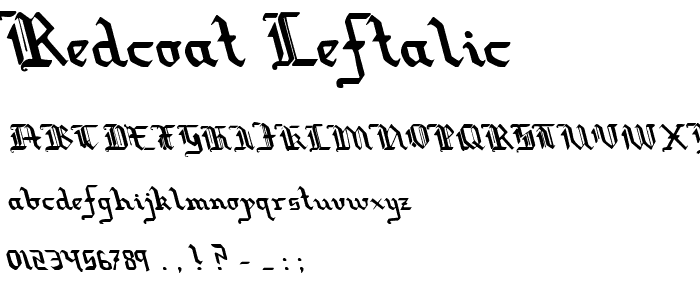 Redcoat Leftalic
ABCDEFGHIJKLMNOPQRSTUVWXY
abcdefghijklmnopqrstuvwxyz
0123456789 . , ! ? - _ : ;